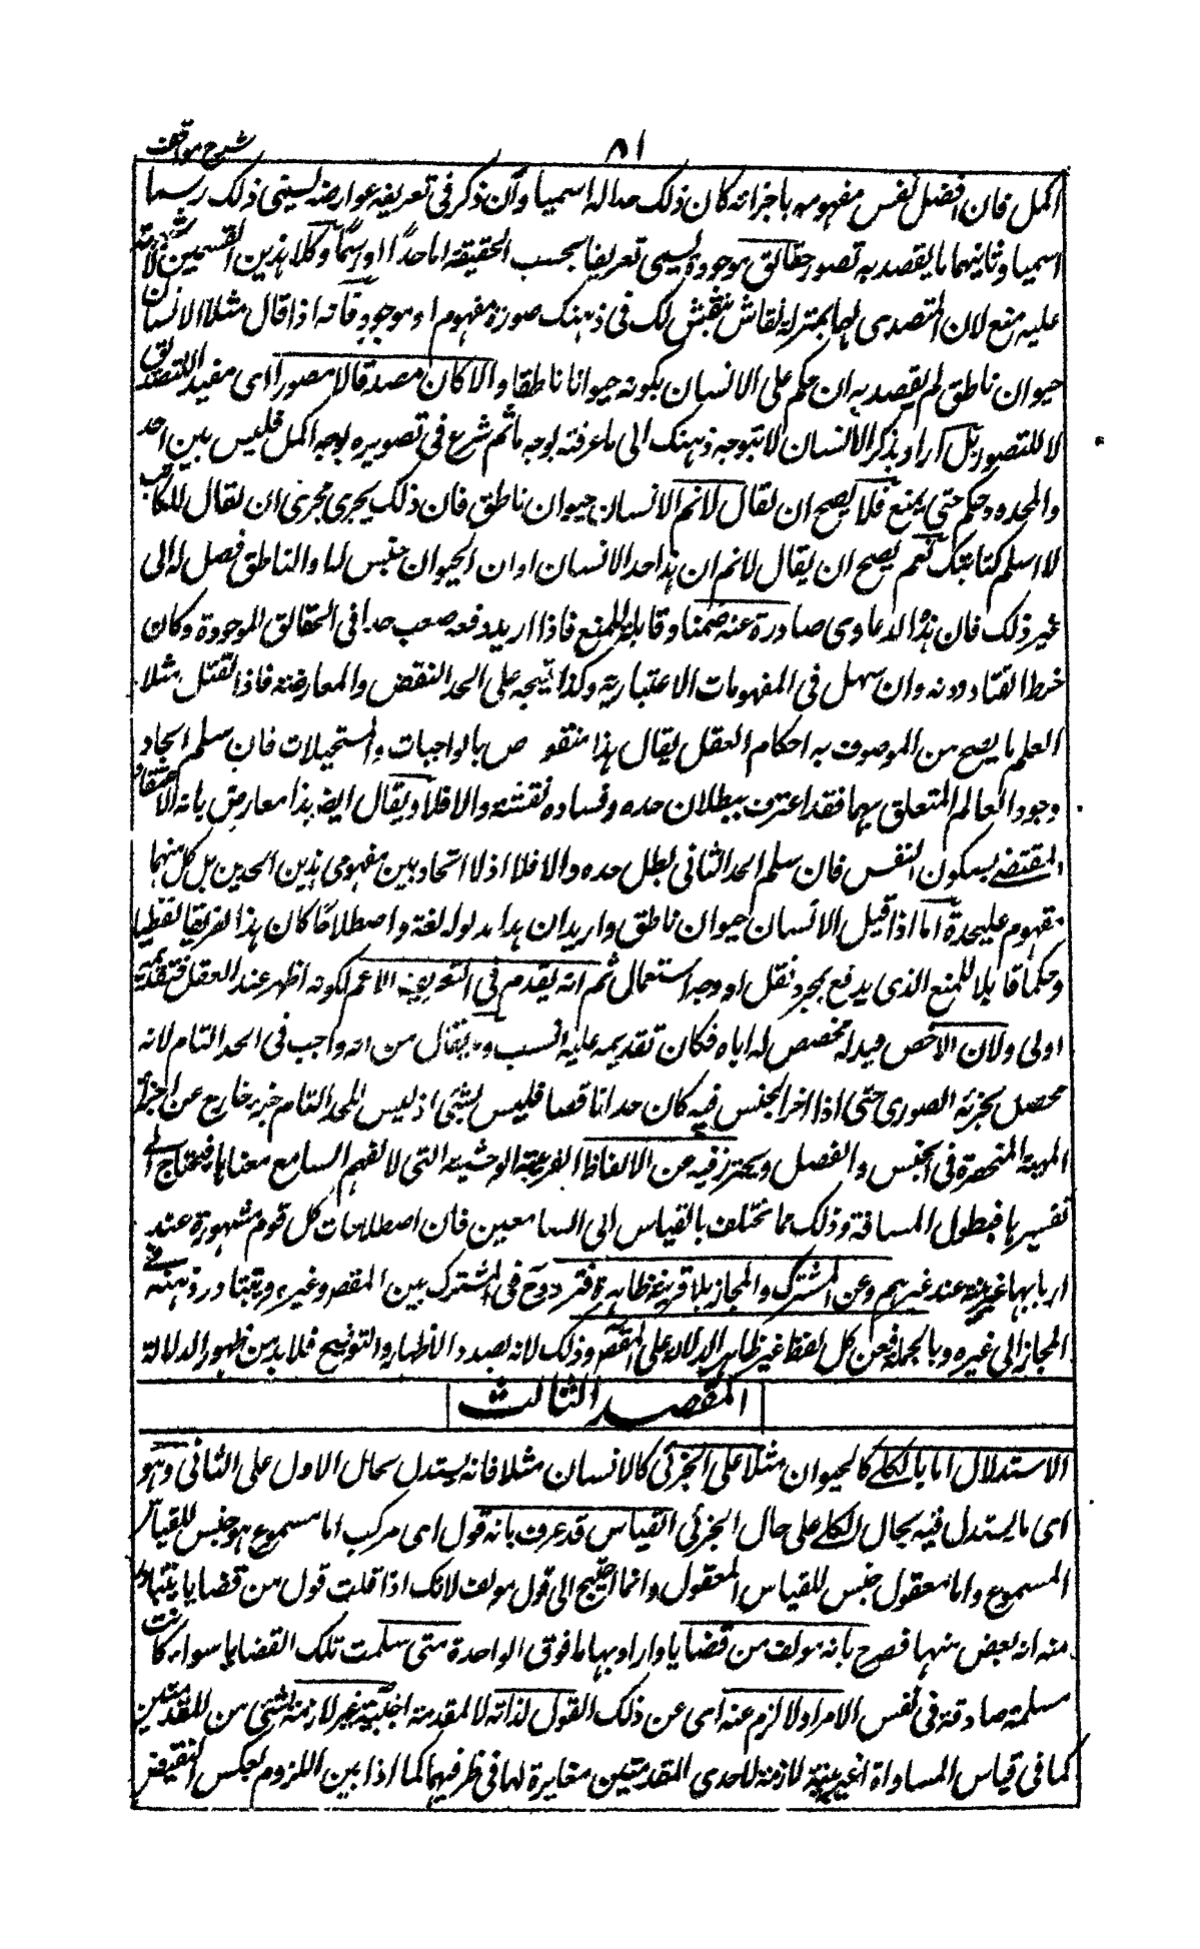 شرح مواقف
٥١
اکمل فان فصل نفس مفهومه باجزائه کان ذلک حدا له اسمیا وان ذکر فی تعریفه عوارضه لیسمی ذلک رسما
اسمیا وثانیهما ما یقصد به تصور حقائق موجودة لیسمی تعریفا بحسب الحقیقة اما حدا او رسما وکلا هذین القسمین لا یتجه
علیه منع لان المتصدی لهما بمنزلة نقاش ینقش لک فی ذهنک صورة مفهوم او موجود فانه اذا قال مثلا الانسان
حیوان ناطق لم یقصد به ان یحکم علی الانسان بکونه حیوانا ناطقا والا کان مصدقا لا مصورا ای مفید التصدیق
لا للتصور بل اراد بذکر الانسان لان یتوجه ذهنک الی ما عرفته بوجه ما ثم شرع فی تصویره بوجه اکمل فلیس بین الحد
والمحدود حکم حتی یمنع فلا یصح ان یقال لا نم الانسان حیوان ناطق فان ذلک یجری مجری ان یقال للکاتب
لا اسلم کتابتک نعم یصح ان یقال لا نم ان هذا حد الانسان او ان الحیوان جنس له او الناطق فصل له الی
غیر ذلک فان هذه الدعاوی صادرة عنه ضمنا وقابلة للمنع فاذا ارید دفعه صعب جدا فی الحقائق الموجودة وکان
خرط القتاد دونه وان سهل فی المفهومات الاعتباریة وکذا یتجه علی الحد النقض والمعارضة فاذا قیل مثلا
العلم ما یصح من الموصوف به احکام العقل یقال هذا منقوص بالواجبات والمستحیلات فان سلم الحاد
وجود العالم المتعلق بهما فقد اعترف ببطلان حده وفساده نقشه والا فلا ویقال ایضا هذا معارض بانه الاعتقاد
المقتضی لسکون النفس فان سلم الحد الثانی بطل حده والا فلا اذ لا اتحاد بین مفهومی هذین الحدین بل کل منهما
مفهوم علیحدة اما اذا قیل الانسان حیوان ناطق وارید ان هذا مدلوله لغة واصطلاحا کان هذا تعریفا لفظیا
وحکما قابلا للمنع الذی یدفع بمجرد نقل او وجه استعمال ثم انه یقدم فی التعریف الاعم لکونه اظهر عند العقل فتقدیمه
اولی ولان الاخص قید له مخصص له ایاه فکان تقدیمه علیه انسب وما یقال من انه واجب فی الحد التام لانه
محصل لجزئه الصوری حتی اذا اخر الجنس فیه کان حدا ناقصا فلیس بشئ اذ لیس للحد التام جزء خارج عن اجزاء
المهیة المنحصرة فی الجنس والفصل ویحترز فیه عن الالفاظ الغریبة الوحشیة التی لا یفهم السامع معناها فیحتاج الی
تفسیرها فیطول المسافة وذلک مما یختلف بالقیاس الی السامعین فان اصطلاحات کل قوم مشهورة عند
اربابها غریبة عند غیرهم وعن المشترک والمجاز بلا قرینة ظاهرة فتردده فی المشترک بین المقصود وغیره ویتبادر ذهنه فی
المجاز الی غیره وبالجملة فعن کل لفظ غیر ظاهر الدلالة علی المقصود وذلک لانه بصدد الاظهار والتوضیح فلا بد من ظهور الدلالة
المقصد الثالث
الاستدلال اما بالکلی کالحیوان مثلا علی الجزئی کالانسان مثلا فانه یستدل بحال الاول علی الثانی وهو
ای ما یستدل فیه بحال الکلی علی حال الجزئی القیاس قد عرف بانه قول ای مرکب اما مسموع هو جنس للقیاس
المسموع واما معقول جنس للقیاس المعقول وانما احتیج الی قول مولف لانک اذا قلت قول من قضایا یتبادر
منه انه بعض منها فصرح بانه مولف من قضایا واراد بها ما فوق الواحدة متی سلمت تلک القضایا سواء کانت
مسلمة صادقة فی نفس الامر او لا لزم عنه ای عن ذلک القول لذاته لا لمقدمة اجنبیة غیر لازمة لشئ من المقدمتین
کما فی قیاس المساواة او غریبة لازمة لاحدی المقدمتین مغایرة لها فی طرفیها کما اذا بین اللزوم بعکس النقیض